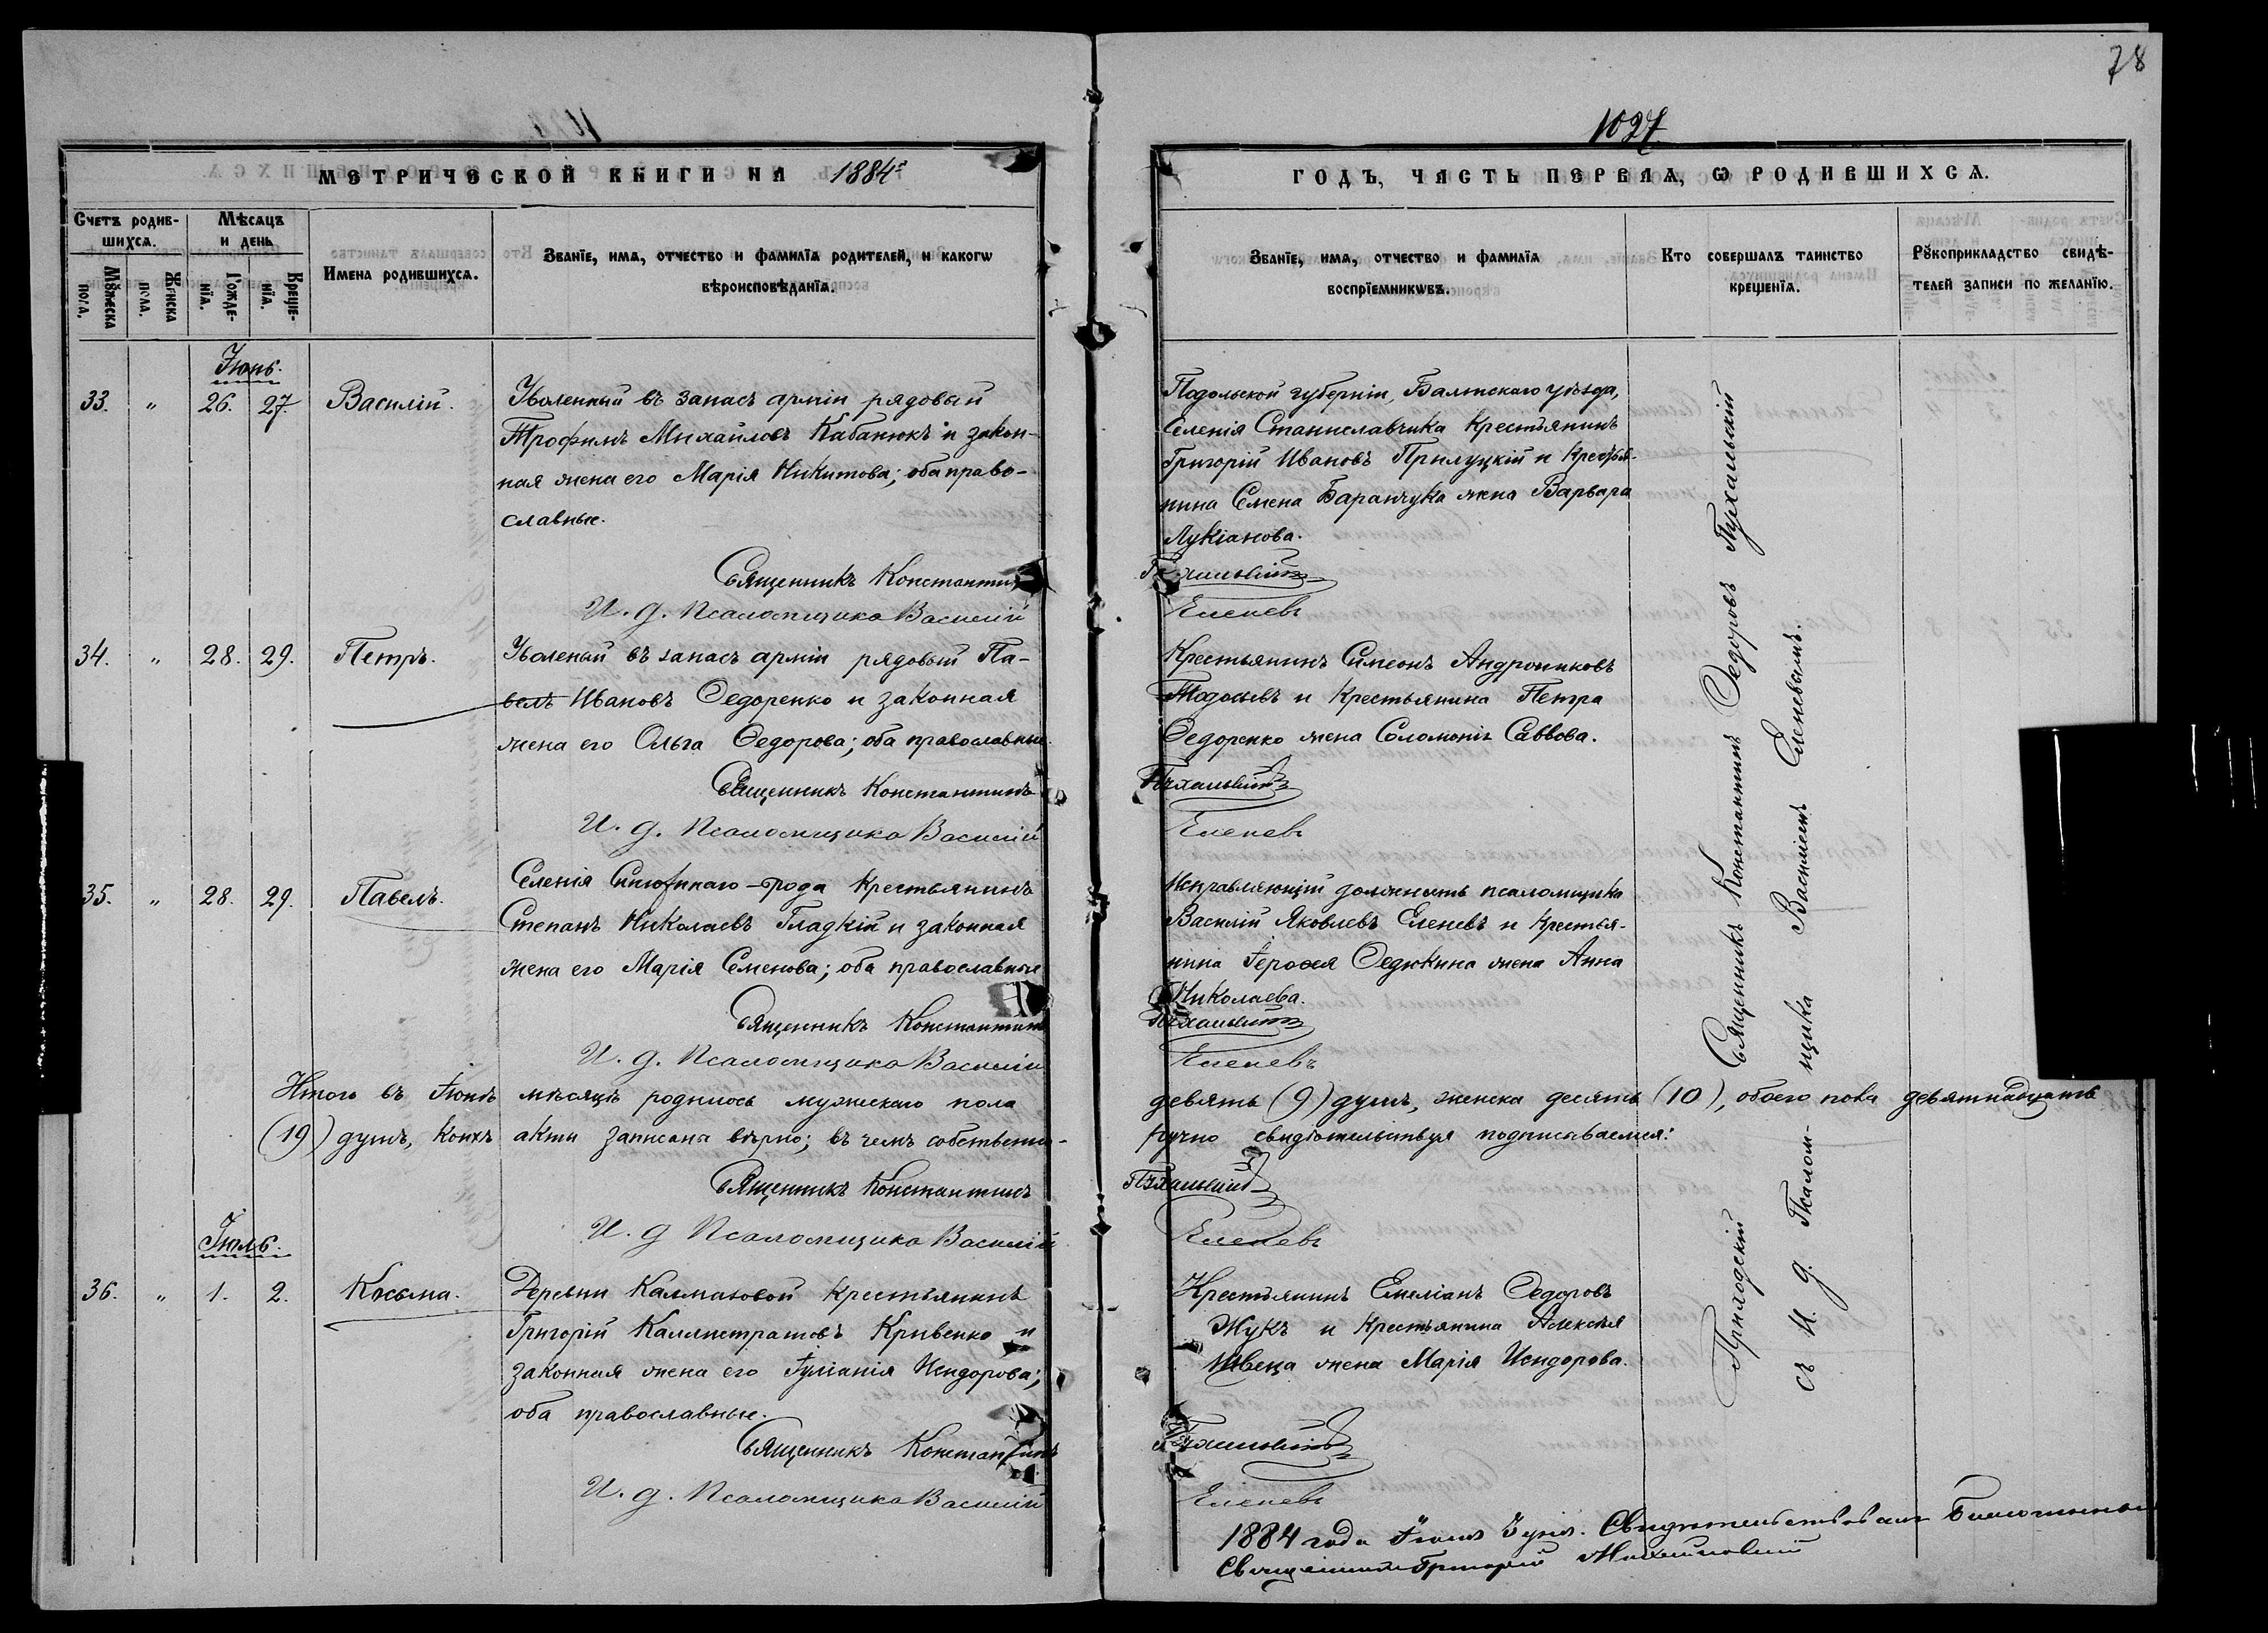 78
1027.
МЕТРИЧЕСКОЙ КНИГИ НА 1884й
ГОДЪ, ЧАСТЬ ПЕРВАЯ, Ѡ РОДИВШИХСѦ.
Счетъ родив-
шихсѧ.
Мꙋжеска
пола.
Женска
пола.
Мѣсѧцъ
и день
Рожде-
нїѧ.
Креще-
нїѧ.
Имена родившихсѧ.
Званїе, имѧ, отчество и фамилїѧ родителей, и какогѡ
вѣроисповѣданїѧ.
Званїе, имѧ, отчество и фамилїѧ
воспрїемникѡвъ.
Кто совершалъ таинство
крещенїѧ.
Рꙋкоприкладство свидѣ-
телей записи по желанїю.
Іюнь.
33. " 26. 27. Василій.
Уволенный въ запасъ арміи рядовый
Трофимъ Михайловъ Кабанюкъ и закон-
ная жена его Марія Никитова; оба право-
славные.
Священникъ Константинъ
И. д. Псаломщика Василій
Подольской губерніи, Балтскаго уѣзда,
Селенія Станиславчика Крестьянинъ
Григорій Ивановъ Прилуцкій и Крестья-
нина Семена Баранчука жена Варвара
Лукіанова.
Пухальскій
Еленевъ
34. " 28. 29. Петръ.
Уволеный въ запасъ арміи рядовый Па-
велъ Ивановъ Ѳедоренко и законная
жена его Ольга Ѳедорова; оба православные.
Священникъ Константинъ
И. д. Псаломщика Василій
Крестьянинъ Симеонъ Андрониковъ
и Крестьянина Петра
Ѳедоренко жена Соломонія Саввова.
Пухальскій
Еленевъ
35. " 28. 29. Павелъ.
Селенія Крестьянинъ
Степанъ Николаевъ Гладкій и законная
жена его Марія Семенова; оба православные
Священникъ Константинъ
И. д. Псаломщика Василій
Исправляющій должность псаломщика
Василій Яковлевъ Еленевъ и Крестья-
нина Іероѳея Ѳедюкина жена Анна
Николаева.
Пухальскій
Еленевъ
Итого въ Іюнѣ мѣсяцѣ родилось мужескаго пола
девять (9) душъ, женска десять (10), обоего пола девятнадцать
(19) душъ, коихъ акты записаны вѣрно; въ чемъ собственно-
ручно свидѣтельствуя подписываемся:
Священникъ Константинъ
И. д Псаломщика Василій
Пухальскій
Еленевъ
Іюль.
36. " 1. 2. Косьма.
Деревни Калмазовой Крестьянинъ
Григорій Каллистратовъ Кривенко и
законная жена его Іуліанія Исидорова;
оба православные.
Священникъ Константинъ
И. д. Псаломщика Василій
Крестьянинъ Емеліанъ Ѳедоровъ
Жукъ и Крестьянина Алексѣя
Швеца жена Марія Исидорова.
Пухальскій
Еленевъ
Приходскій Священникъ Константинъ Ѳедоровъ Пухальскій
съ И. д. Псалом-щика Василіемъ Еленевымъ.
1884 года Іюля дня. Свидѣтельствовалъ
Священникъ Григорій